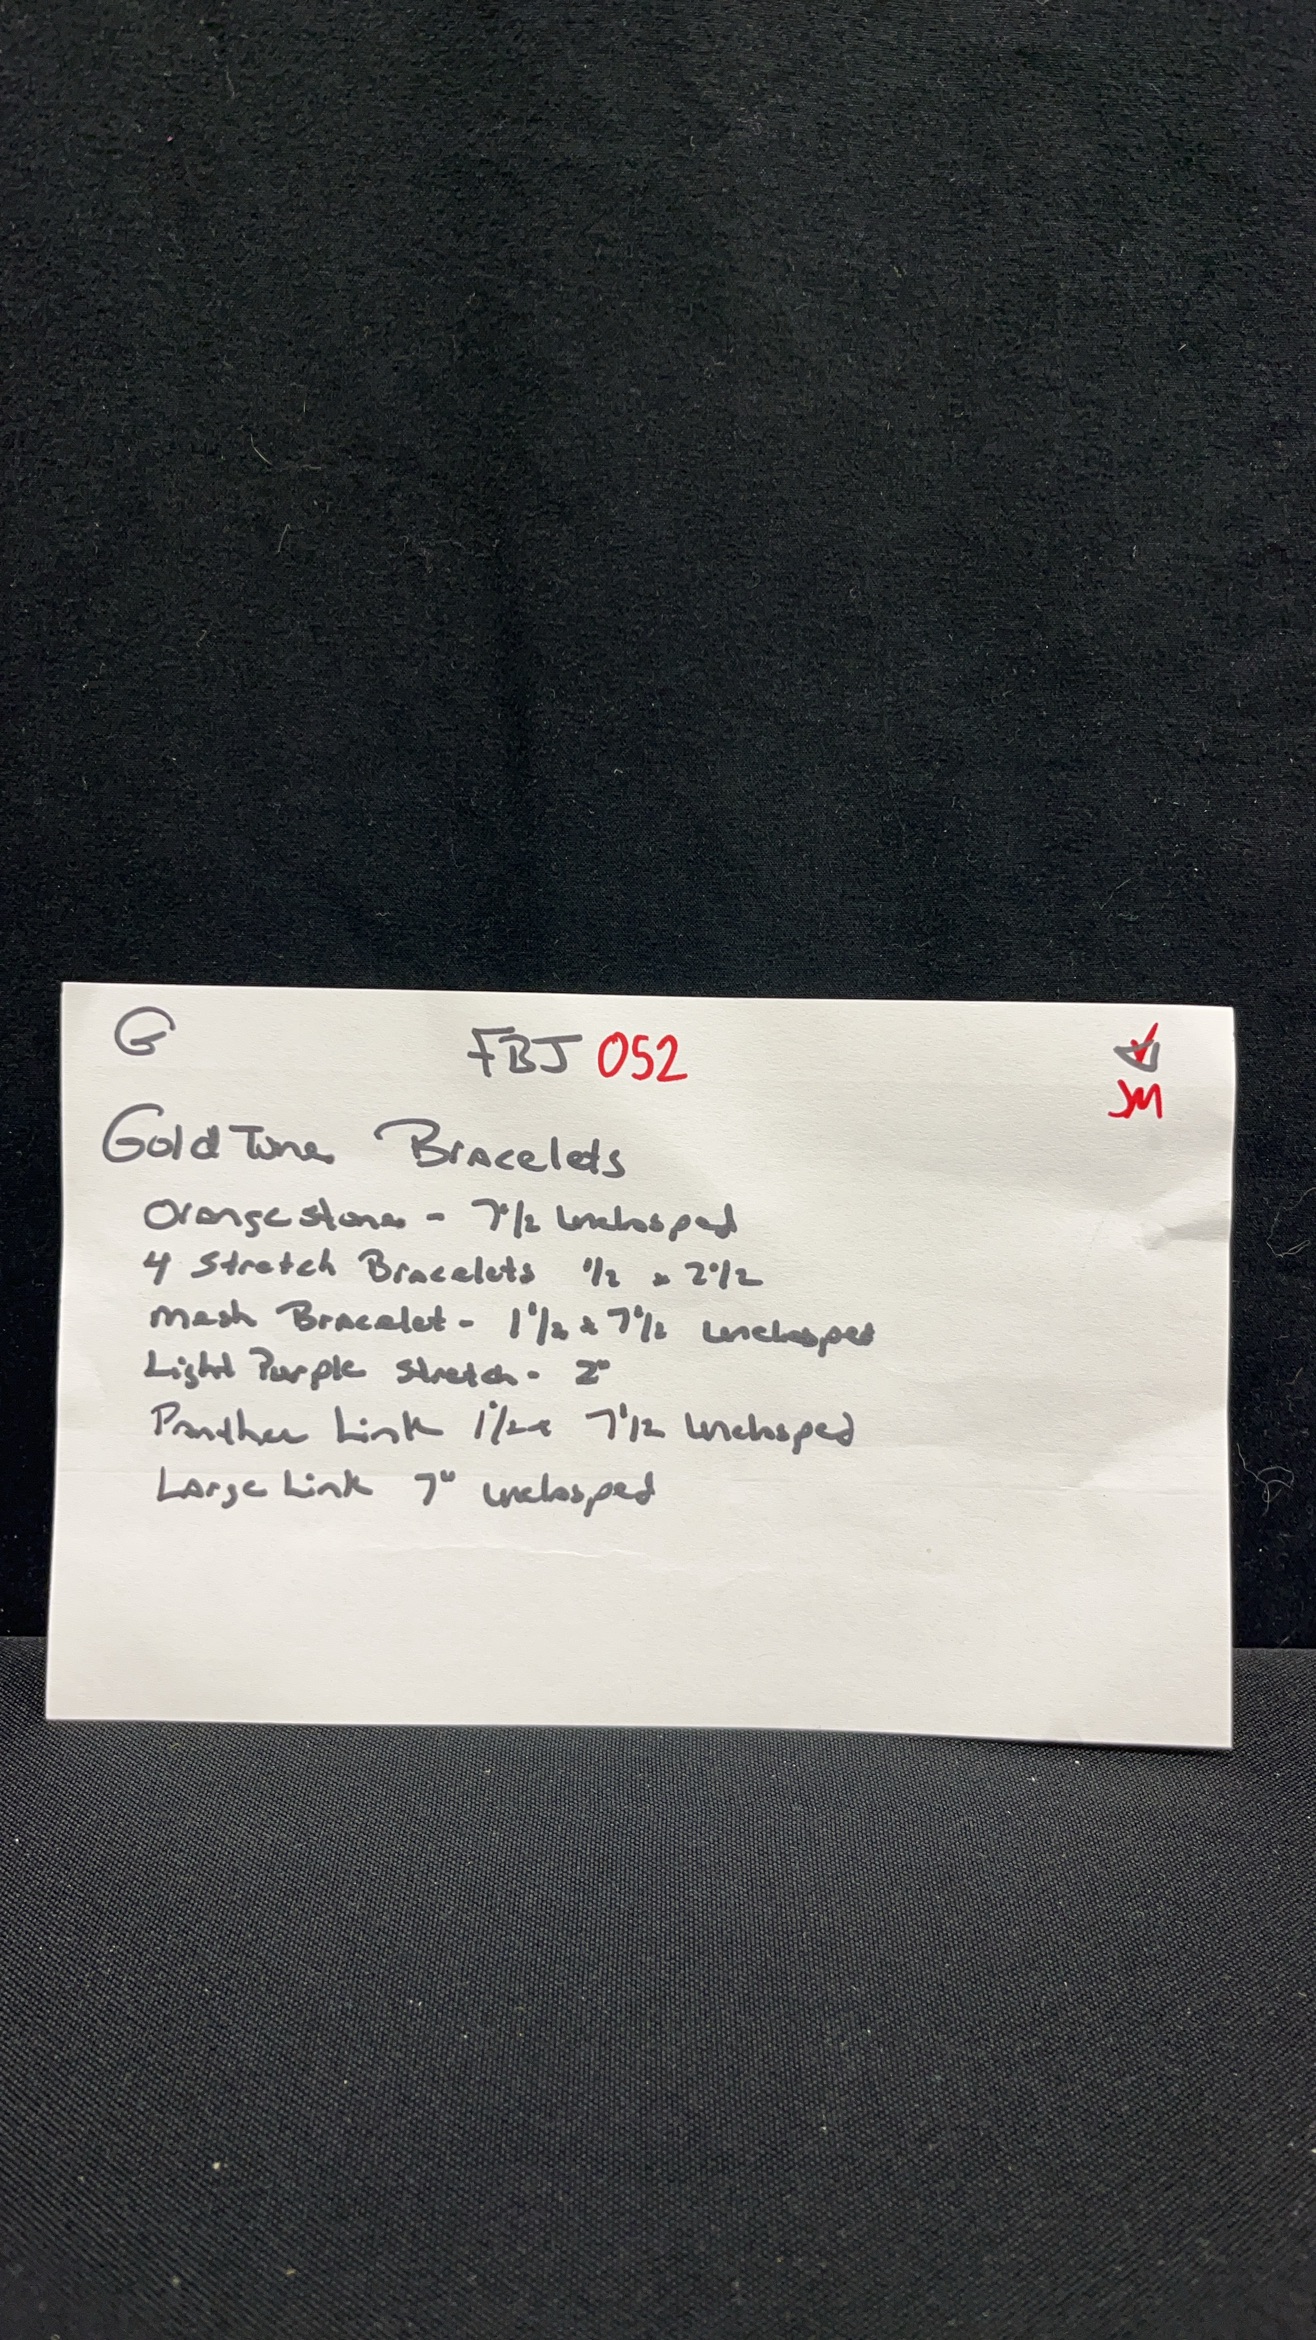 G
FBJ 052
JM
Gold Tone Bracelets
Orange stone - 7 1/2 unclasped
4 Stretch Bracelets 1/2 x 2 1/2
Mesh Bracelet - 1 1/2 x 7 1/2 unclasped
Light Purple stretch - 2"
Panther Link 1 1/2 x 7 1/2 unclasped
Large Link 7" unclasped